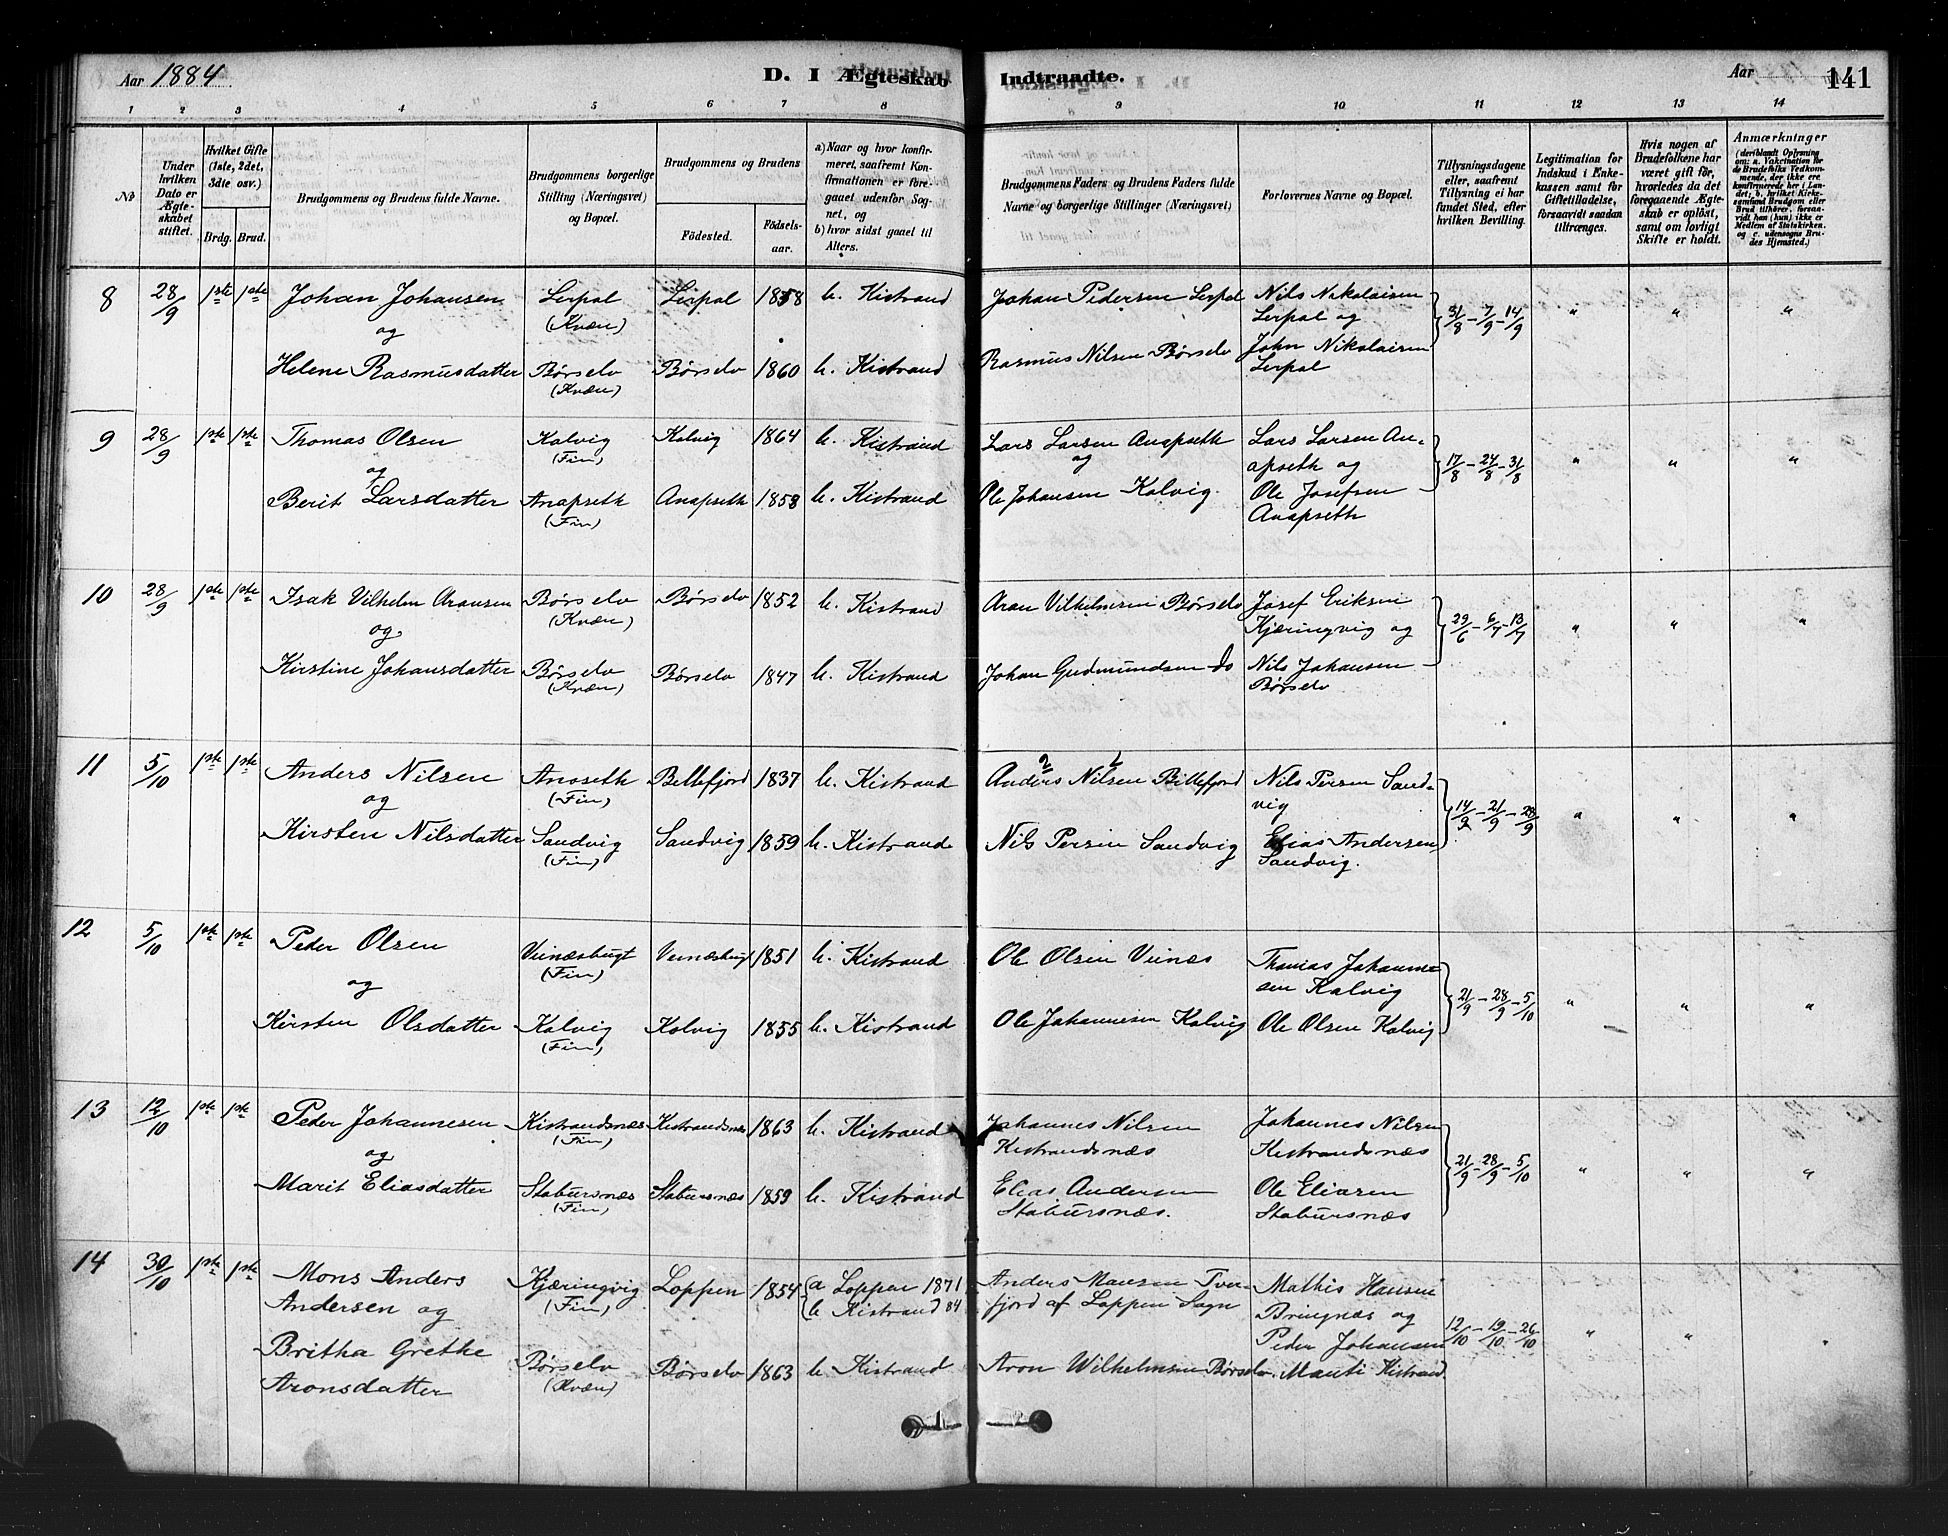 Aar 1884. D. I Ægteskab Indtraadte. Aar 141
1 2 3 4 5 6 7 8 9 10 11 12 13 14
No
Under hvilken Dato er Ægteskabet stiftet.
Hvilket Gifte (1ste, 2det, 3die osv.)
Brdg. Brud.
Brudgommens og Brudens fulde Navne.
Brudgommens borgerlige Stilling (Næringsvei) og Bopæl.
Brudgommens og Brudens
Fødested. Fødselsaar.
a) Naar og hvor konfirmeret, saafremt Konfirmationen er foregaaet udenfor Sognet, og
b) hvor sidst gaaet til Alters.
Brudgommens Faders og Brudens Faders fulde Navne og borgerlige Stillinger (Næringsvei)
Forlovernes Navne og Bopæl.
Tillysningsdagene eller, saafremt Tillysning ei har fundet Sted, efter hvilken Bevilling.
Legitimation for Indskud i Enkekassen samt for Giftetilladelse, forsaavidt saadan tiltrænges.
Hvis nogen af Brudefolkene har været gift før, hvorledes da det foregaaende Ægteskab er opløst, samt om lovligt Skifte er holdt.
Anmærkninger (deriblandt Oplysning om: a. Vakcination for de Brudefolks Vedkommende, der ikke ere konfirmerede her i Landet, b. hvilket Kirkesamfund Brudgom eller Brud tilhører, forsaavidt han (hun) ikke er Medlem af Statskirken. og c. udensogns Brudes Hjemsted.)
8 28/9 1ste 1ste Johan Johansen Lerpol (Kvæn) Lerpol 1858 b. Kistrand Johan Pedersen Lerpol Nils Nikolaisen Lerpol og 31/8 - 7/9 - 14/9 " " "
og
Helene Rasmusdatter Børselv (Kvæn) Børselv 1860 b. Kistrand Rasmus Nilsen Børselv John Nikolaisen Lerpol
9 28/9 1ste 1ste Thomas Olsen Kolvig (Fin) Kolvig 1864 b. Kistrand Lars Larsen Anapseth og Lars Larsen Anapseth og 17/8 - 24/8 - 31/8 " " "
og
Berit Larsdatter Anapseth (Fin) Anapseth 1858 b. Kistrand Ole Johansen Kolvig. Ole Josefsen Anapseth
10 28/9 1ste 1ste Isak Vilhelm Aronsen Børselv (Kvæn) Børselv 1852 b. Kistrand Aron Vilhelmsen Børselv Josef Eriksen Kjæringvig og 29/6 - 6/7 - 13/7 " " "
og
Kirstine Johansdatter Børselv (Kvæn) Børselv 1847 b. Kistrand Johan Gudmundsen do Nils Johansen Børselv
11 5/10 1ste 1ste Anders Nilsen Anoseth (Fin) Billefjord 1837 b. Kistrand Anders Nilsen Billefjord Nils Persen Sandvig 14/9 - 21/9 - 28/9 " " "
og
Kirsten Nilsdatter Sandvig (Fin) Sandvig 1859 b. Kistrand Nils Persen Sandvig Elias Andersen Sandvig.
12 5/10 1ste 1ste Peder Olsen Veinæsbugt (Fin) Veinæsbugt 1851 b. Kistrand Ole Olsen Veinæs Thomas Johannesen Kolvig 21/9 - 28/9 - 5/10 " " "
og
Kirsten Olsdatter Kolvig (Fin) Kolvig 1855 b. Kistrand Ole Johannesen Kolvig Ole Olsen Kolvig
13 12/10 1ste 1ste Peder Johannesen Kistrandsnæs (Fin) Kistrandsnæs 1863 b. Kistrand Johannes Nilsen Kistrandsnæs Johannes Nilsen Kistrandsnæs 21/9 - 28/9 - 5/10 " " "
og
Marit Eliasdatter Stabursnæs (Fin) Stabursnæs 1859 b. Kistrand Elias Andersen Stabursnæs. Ole Eliasen Stabursnæs
14 30/10 1ste 1ste Mons Anders Andersen og Kjæringvig (Fin) Loppen 1854 a Loppen 1871 b Kistrand 84 Anders Monsen Tverfjord af Loppen Sogn Mathis Hansen Bringnæs og 12/10 - 19/10 - 26/10 " " "
Britha Grethe Aronsdatter Børselv (Kvæn) Børselv 1863 b. Kistrand Aron Wilhelmsen Børselv. Peder Johansen Mauti Kistrand